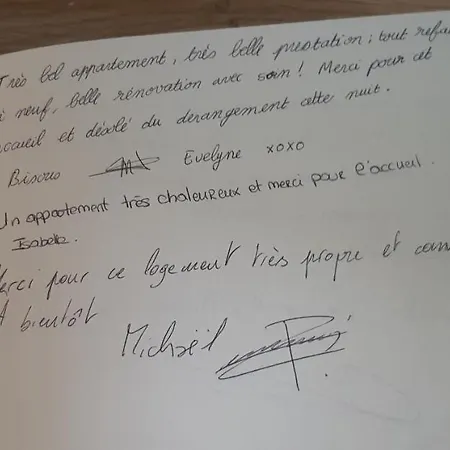 Très bel appartement, très belle prestation ; tout refait
à neuf, belle rénovation avec soin ! Merci pour cet
accueil et désolé du dérangement cette nuit.
Bisous Evelyne xoxo
Un appartement très chaleureux et merci pour l'accueil.
Isabelle.
Merci pour ce logement très propre et
A bientôt
Michaël